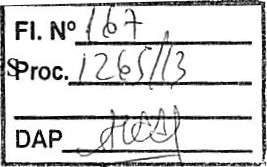 Fl. Nº 167
Proc. 1265/13
DAP